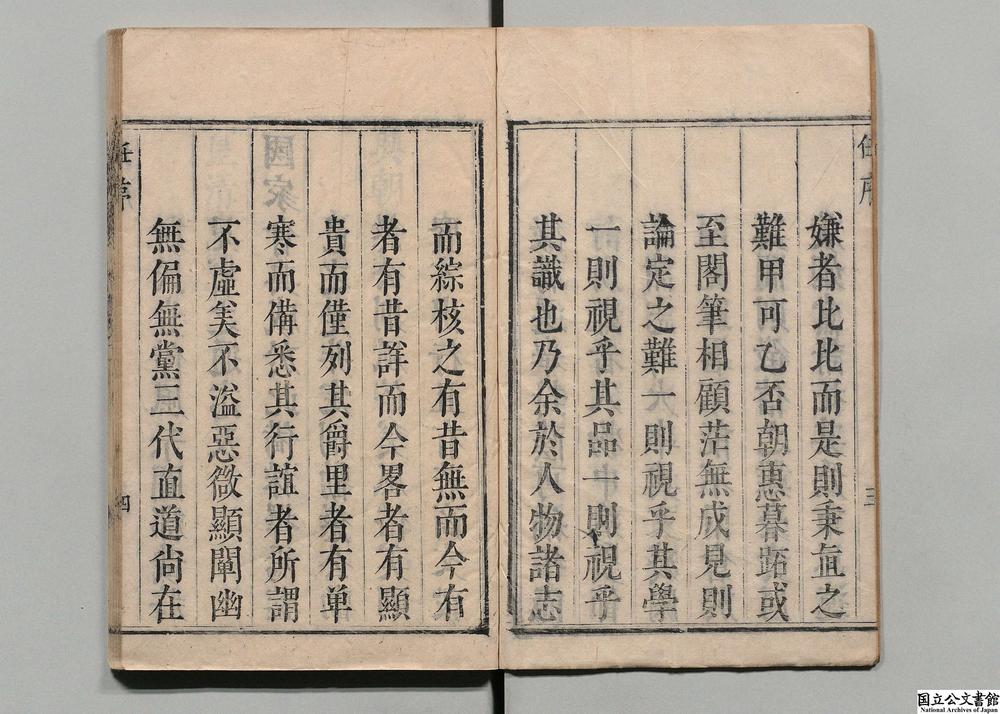 任序
三
嫌者比比而是則秉直之
難甲可乙否朝惠暮跖或
至閣筆相顧茫無成見則
論定之難一則視乎其學
一則視乎其品一則視乎
其識也乃余於人物諸志
而綜核之有昔無而今有
者有昔詳而今畧者有顯
貴而僅列其爵里者有单
寒而備悉其行誼者所謂
不虛美不溢惡微顯闡幽
無偏無黨三代直道尙在
任序
四
国立公文書館
National Archives of Japan